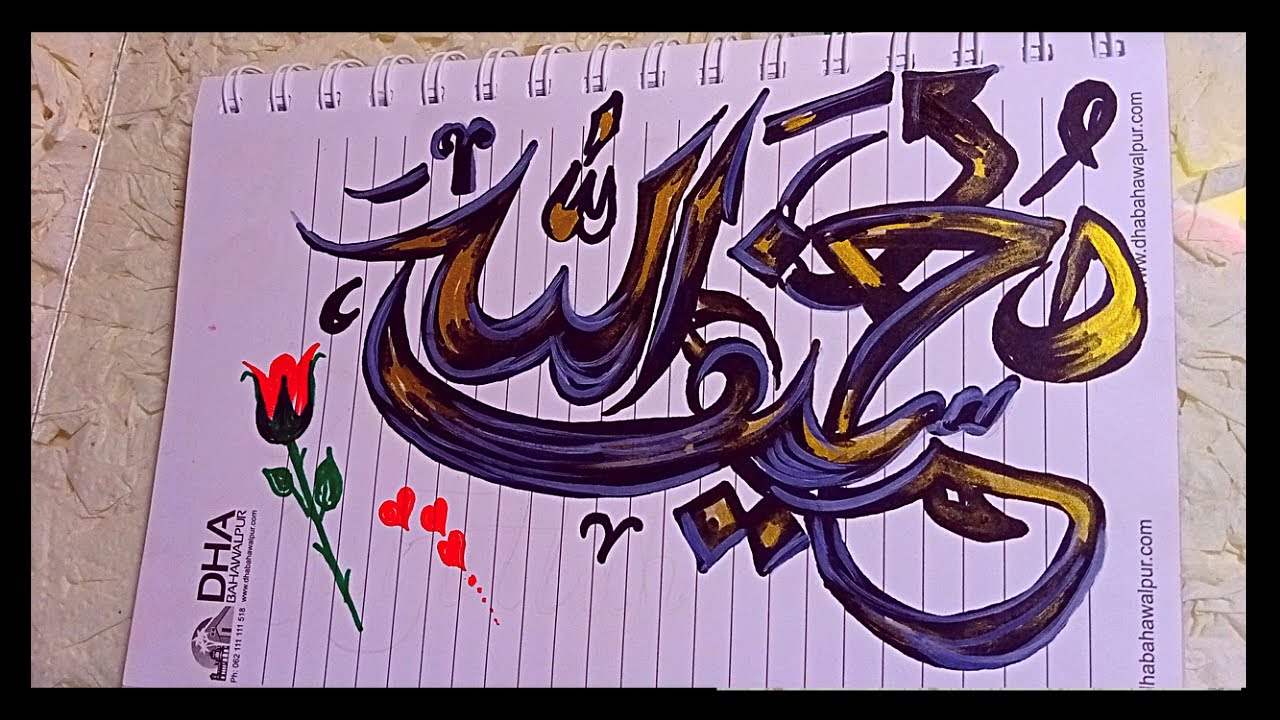 محمد
الله
www.dhabahawalpur.com
dhabahawalpur.com
DHA
BAHAWALPUR
www.dhabahawalpur.com
Ph: 062 111 111 518